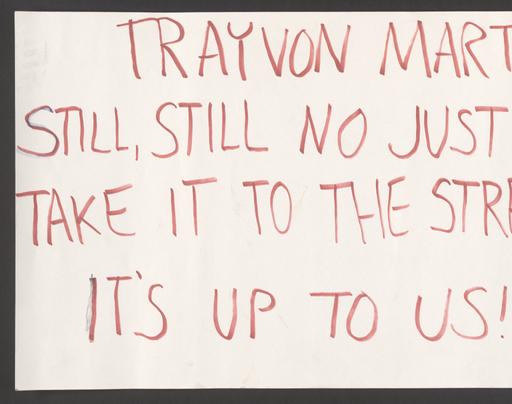 TRAYVON MART
STILL, STILL NO JUST
TAKE IT TO THE STRE
IT'S UP TO US!